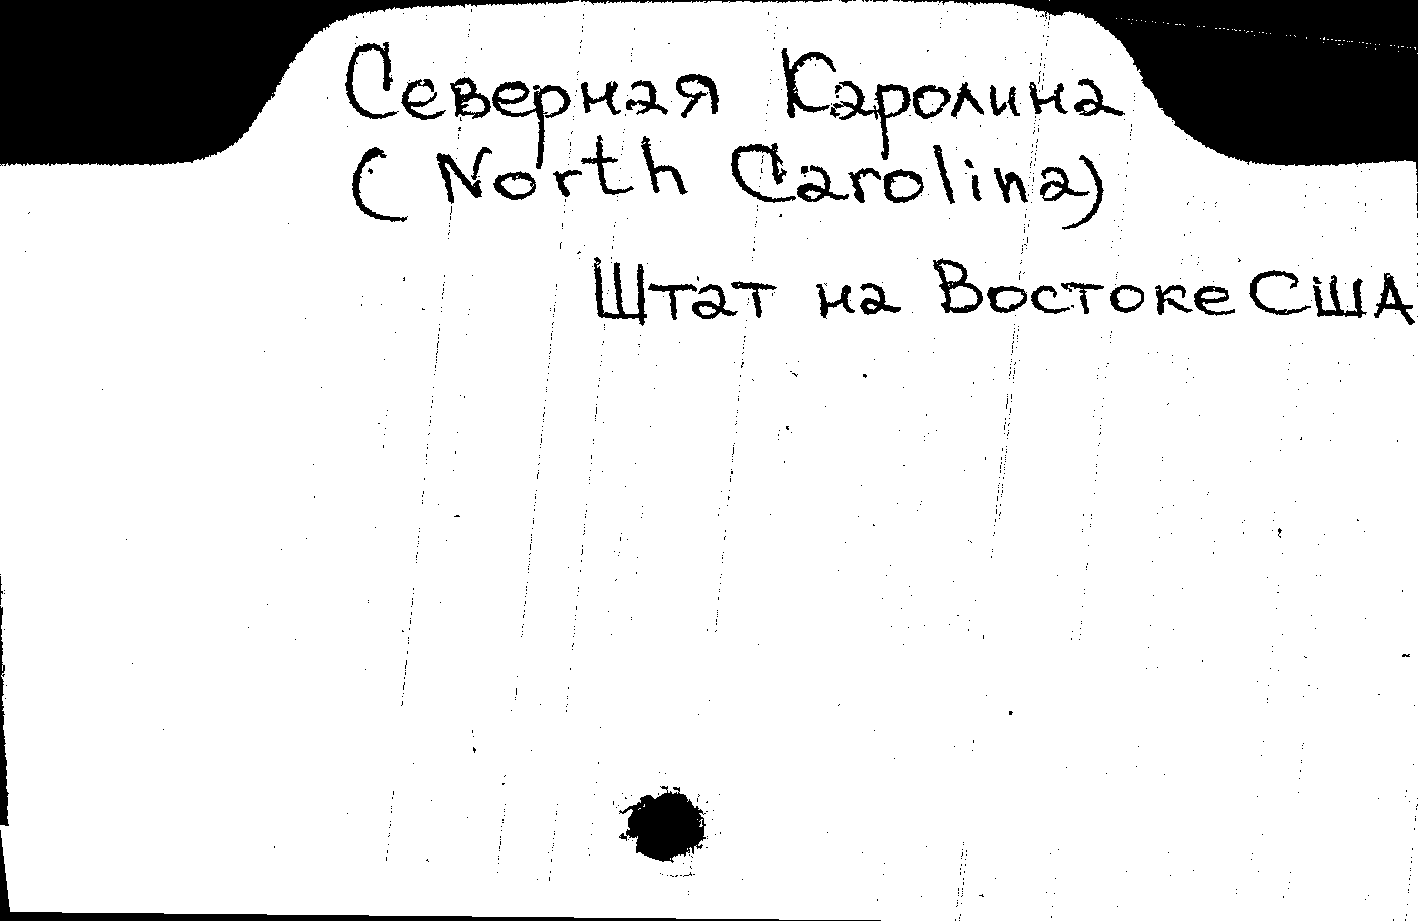 Северная Каролина
(North Carolina)
Штат на Востоке США